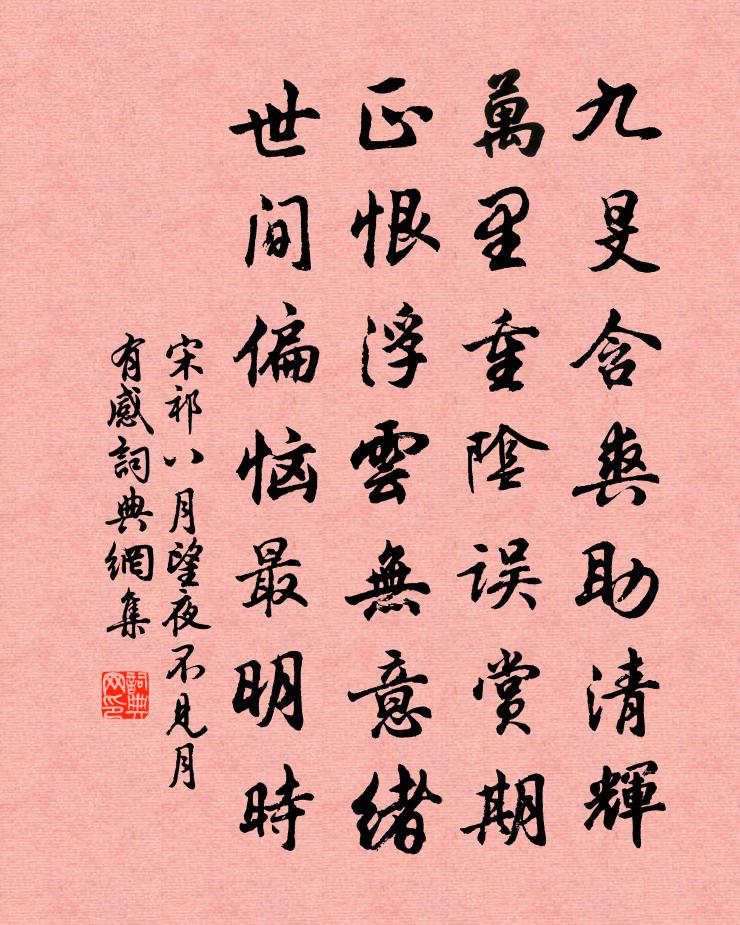 九旻含爽助清輝
萬里重陰误賞期
正恨浮雲無意緒
世间偏恼最明時
宋祁八月望夜不見月
有感詞典網集
詞典网印